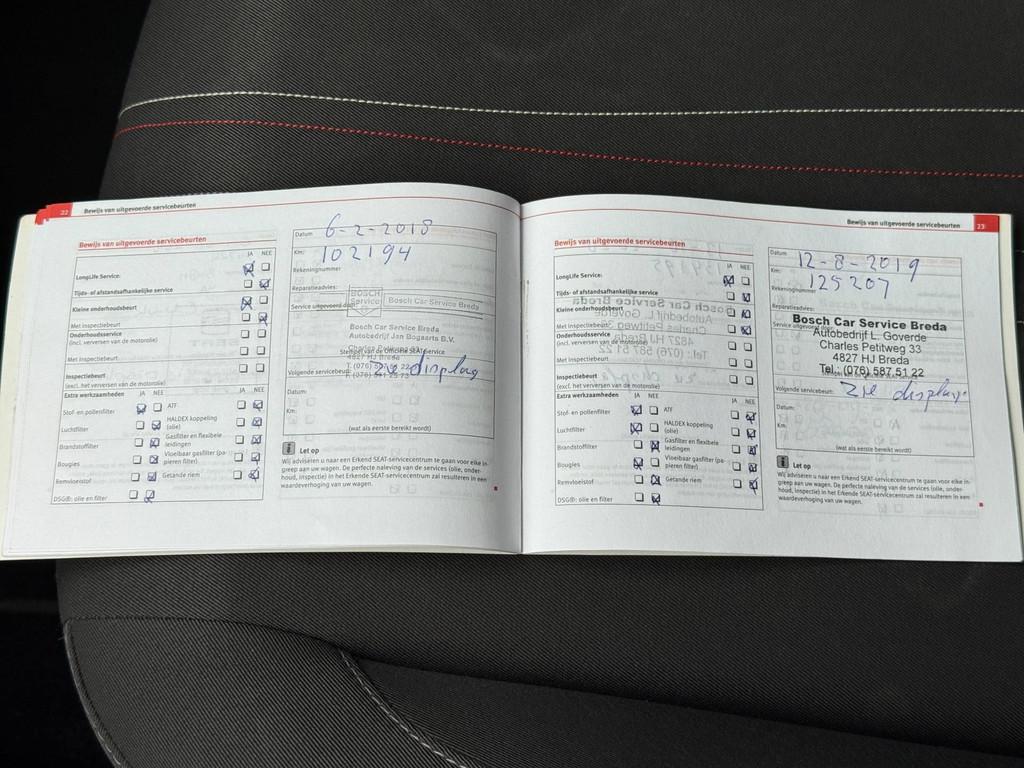 22
Bewijs van uitgevoerde servicebeurten
Bewijs van uitgevoerde servicebeurten
JA NEE
LongLife Service:
Tijds- of afstandsafhankelijke service
Kleine onderhoudsbeurt
Met inspectiebeurt
Onderhoudsservice
(incl. verversen van de motorolie)
Met inspectiebeurt
Inspectiebeurt
(excl. het verversen van de motorolie)
Extra werkzaamheden JA NEE JA NEE
Stof- en pollenfilter ATF
Luchtfilter HALDEX koppeling
(olie)
Brandstoffilter Gasfilter en flexibele
leidingen
Bougies Vloeibaar gasfilter (pa-
pieren filter)
Remvloeistof Getande riem
DSG®: olie en filter
Datum 6-2-2018
Km: 102194
Rekeningnummer
Reparatieadvies:
Service uitgevoerd door:
BOSCH
Service
Bosch Car Service Breda
Bosch Car Service Breda
Autobedrijf Jan Bogaerts B.V.
Charles Petitweg 33
Stempel van de Officiële SEAT-Service
4827 HJ Breda
Volgende servicebeurt: zie display
Datum:
Km:
(wat als eerste bereikt wordt)
Let op
Wij adviseren u naar een Erkend SEAT-servicecentrum te gaan voor elke in-
greep aan uw wagen. De perfecte naleving van de services (olie, onder-
houd, inspectie) in het Erkende SEAT-servicecentrum zal resulteren in een
waardeverhoging van uw wagen.
Bewijs van uitgevoerde servicebeurten
23
Bewijs van uitgevoerde servicebeurten
JA NEE
LongLife Service:
Tijds- of afstandsafhankelijke service
Kleine onderhoudsbeurt
Met inspectiebeurt
Onderhoudsservice
(incl. verversen van de motorolie)
Met inspectiebeurt
Inspectiebeurt
(excl. het verversen van de motorolie)
Extra werkzaamheden JA NEE JA NEE
Stof- en pollenfilter ATF
Luchtfilter HALDEX koppeling
(olie)
Brandstoffilter Gasfilter en flexibele
leidingen
Bougies Vloeibaar gasfilter (pa-
pieren filter)
Remvloeistof Getande riem
DSG®: olie en filter
Datum 12-8-2019
Km: 125207
Rekeningnummer
Reparatieadvies:
Service uitgevoerd door:
Bosch Car Service Breda
Autobedrijf L. Goverde
Charles Petitweg 33
4827 HJ Breda
Tel.: (076) 587 51 22
Volgende servicebeurt: zie display
Datum:
Km:
(wat als eerste bereikt wordt)
Let op
Wij adviseren u naar een Erkend SEAT-servicecentrum te gaan voor elke in-
greep aan uw wagen. De perfecte naleving van de services (olie, onder-
houd, inspectie) in het Erkende SEAT-servicecentrum zal resulteren in een
waardeverhoging van uw wagen.